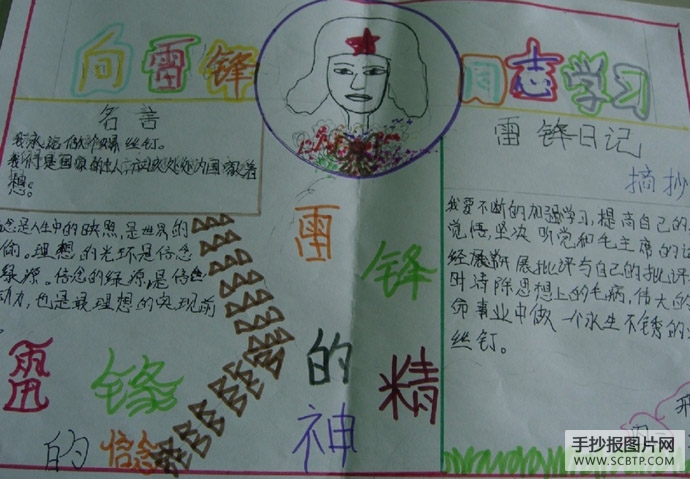 向雷锋同志学习
名言
我永远做个螺丝钉。
我们是国家的主人,应该处处为国家着
想。
念是人生中的映照,是世界的
理想的光环是信念
绿源。信念的绿源,是信
动力,也是最理想的实现前
雷锋
的信念
雷锋
的精
神
雷锋日记
摘抄
我要不断的加强学习,提高自己的
觉悟,坚决听党和毛主席的
经展新展批评与自己的批评
时清除思想上的毛病,伟大的
命事业中做一个永生不锈的
丝钉。
手抄报图片网
WWW.SCBTP.COM